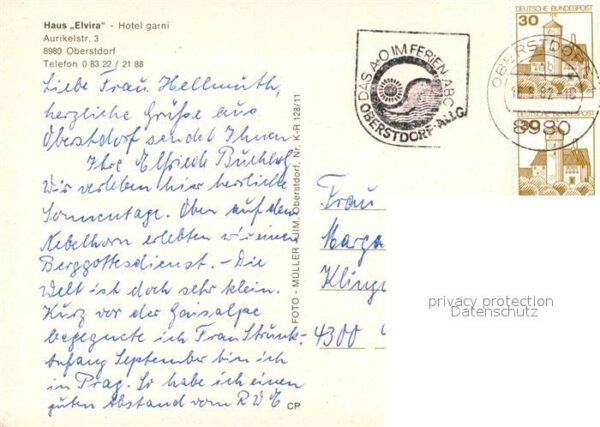 Haus „Elvira" - Hotel garni
Aurikelstr. 3
8980 Oberstdorf
Telefon 0 83 22 / 21 88
Liebe Frau Hellmuth,
herzliche Grüße aus
Oberstdorf sendet Ihnen
Ihre Elfriede
Wir verleben hier herrliche
Sonnentage. Oben auf dem
Nebelhorn erlebten wir einen
Berggottesdienst. - Die
Welt ist doch sehr klein.
Kurz vor der Gaisalpe
begegnete ich Frau Strunk.
Anfang September bin ich
in Prag. So habe ich einen
guten Abstand vom
CP
FOTO - MÜLLER Oberstdorf, Nr. K-R 128/11
DAS A-O IM FERIEN-ABC
OBERSTDORF-ALLG.
30
DEUTSCHE BUNDESPOST
OBERSTDORF
8980
Frau
Marga
Kling
4300
privacy protection
Datenschutz